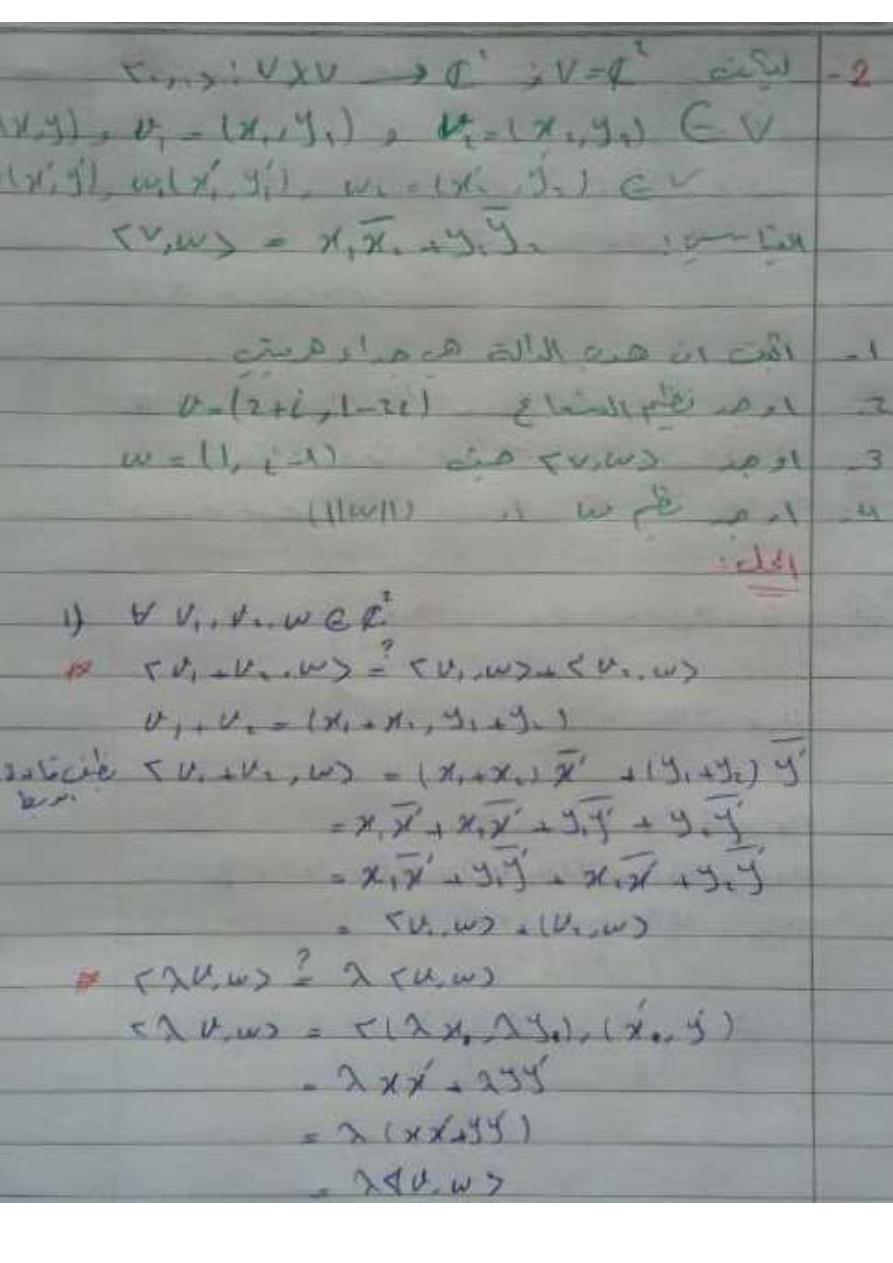 2- لتكن V=¢² ; <.,.> : V×V → ¢
(x,y), v₁ = (x₁, y₁), v₂ = (x₂, y₂) ∈ V
(x',y'), w₁(x'₁, y'₁), w₂ = (x'₂, y'₂) ∈ V
<v,w> = x₁x̄₂ + y₁ȳ₂
1- اثبت ان هذه الدالة هي جداء هرميتي
2- اوجد نظيم الشعاع v=(2+i, 1-2i)
3- اوجد <v,w> حيث w = (1, i-1)
4- اوجد نظيم w (||w||)
الحل:
1) ∀ v₁, v₂, w ∈ ¢²
<v₁+v₂, w> ≟ <v₁, w> + <v₂, w>
v₁+v₂ = (x₁+x₂, y₁+y₂)
<v₁+v₂, w> = (x₁+x₂) x̄' + (y₁+y₂) ȳ'
= x₁x̄' + x₂x̄' + y₁ȳ' + y₂ȳ'
= x₁x̄' + y₁ȳ' + x₂x̄' + y₂ȳ'
= <v₁, w> + <v₂, w>
<λv, w> ≟ λ <v, w>
<λv, w> = <(λx, λy), (x', y')
= λxx' + λyy'
= λ(xx'+yy')
= λ<v, w>